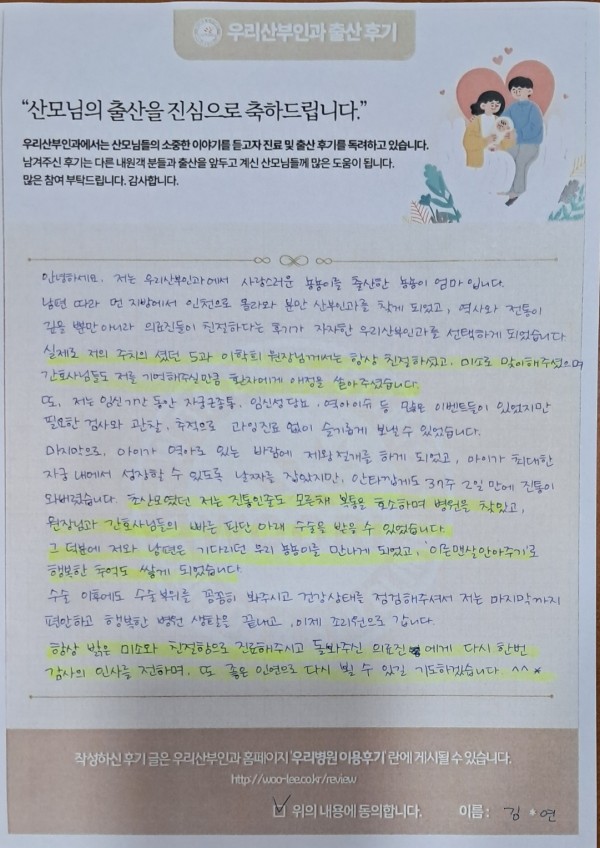 우리산부인과 출산 후기
“산모님의 출산을 진심으로 축하드립니다.”
우리산부인과에서는 산모님들의 소중한 이야기를 듣고자 진료 및 출산 후기를 독려하고 있습니다.
남겨주신 후기는 다른 내원객 분들과 출산을 앞두고 계신 산모님들께 많은 도움이 됩니다.
많은 참여 부탁드립니다. 감사합니다.
안녕하세요. 저는 우리산부인과에서 사랑스러운 뇽뇽이를 출산한 뇽뇽이 엄마 입니다.
남편 따라 먼 지방에서 인천으로 올라와 분만 산부인과를 찾게 되었고, 역사와 전통이
깊을 뿐만 아니라 의료진들이 친절하다는 후기가 자자한 우리산부인과를 선택하게 되었습니다
실제로 저의 주치의 셨던 5과 이학희 원장님께서는 항상 친절하셨고, 미소로 맞이해주셨으며
간호사님들도 저를 기억해주실만큼 환자에게 애정을 쏟아주셨습니다.
또, 저는 임신기간 동안 자궁근종통, 임신성 당뇨, 역아이슈 등 많은 이벤트들이 있었지만
필요한 검사와 관찰, 추적으로 과잉진료 없이 슬기롭게 보낼 수 있었습니다.
마지막으로, 아이가 역아로 있는 바람에 제왕절개를 하게 되었고, 아이가 최대한
자궁 내에서 성장할 수 있도록 날짜를 잡았지만, 안타깝게도 37주 2일 만에 진통이
와버렸습니다. 초산모였던 저는 진통인줄도 모른채 복통을 호소하며 병원을 찾았고,
원장님과 간호사님들의 빠른 판단 아래 수술을 받을 수 있었습니다.
그 덕분에 저와 남편은 기다리던 우리 뇽뇽이를 만나게 되었고, '이른맨살안아주기'로
행복한 추억도 쌓게 되었습니다.
수술 이후에도 수술부위를 꼼꼼히 봐주시고 건강상태를 점검해주셔서 저는 마지막까지
편안하고 행복한 병원 생활을 끝내고, 이제 조리원으로 갑니다.
항상 밝은 미소와 친절함으로 진료해주시고 돌봐주신 의료진에게 다시 한번
감사의 인사를 전하며, 또 좋은 인연으로 다시 뵐 수 있길 기도하겠습니다 ^^*
작성하신 후기 글은 우리산부인과 홈페이지 '우리병원 이용후기' 란에 게시될 수 있습니다.
http://woo-lee.co.kr/review
위의 내용에 동의합니다. 이름 : 김 * 연